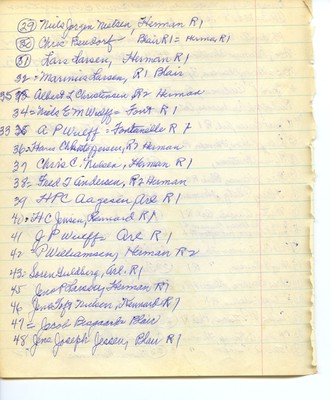 (29) Niels Jorgen Nielsen, Herman R1
(30) Chris Beudorf Blair R1 = Herman R1
(31) Lars Larsen, Herman R1
32 = Marinus Larsen, R1 Blair
35 Albert L Christensen, R2 Herman
34 = Niels E M Wulff = Font R1
33 A P Wulff = Fontanelle R
36 = Hans Christ Jensen, R1 Herman
37 Chris C. Nielsen, Herman R1
38 = Fred T Andersen, R2 Herman
39 HPC Aagesen Arl. R1
40 = H C Jensen, Kennard R1
41 J P Wulff = Arl R1
42 = P Williamsen, Herman R2
43 = Soren Guldberg, Arl. R1
45 Jens P Herman R1
46 Jens Toft Nielsen, Kennard R1
47 = Jacob Blair
48. Jens Joseph Jessen, Blair R1